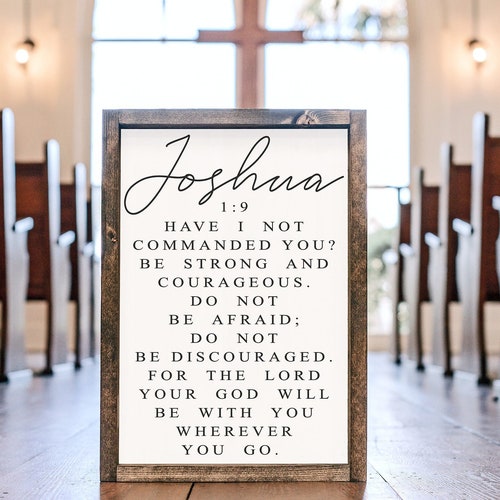 Joshua
1:9
HAVE I NOT
COMMANDED YOU?
BE STRONG AND
COURAGEOUS.
DO NOT
BE AFRAID;
DO NOT
BE DISCOURAGED.
FOR THE LORD
YOUR GOD WILL
BE WITH YOU
WHEREVER
YOU GO.